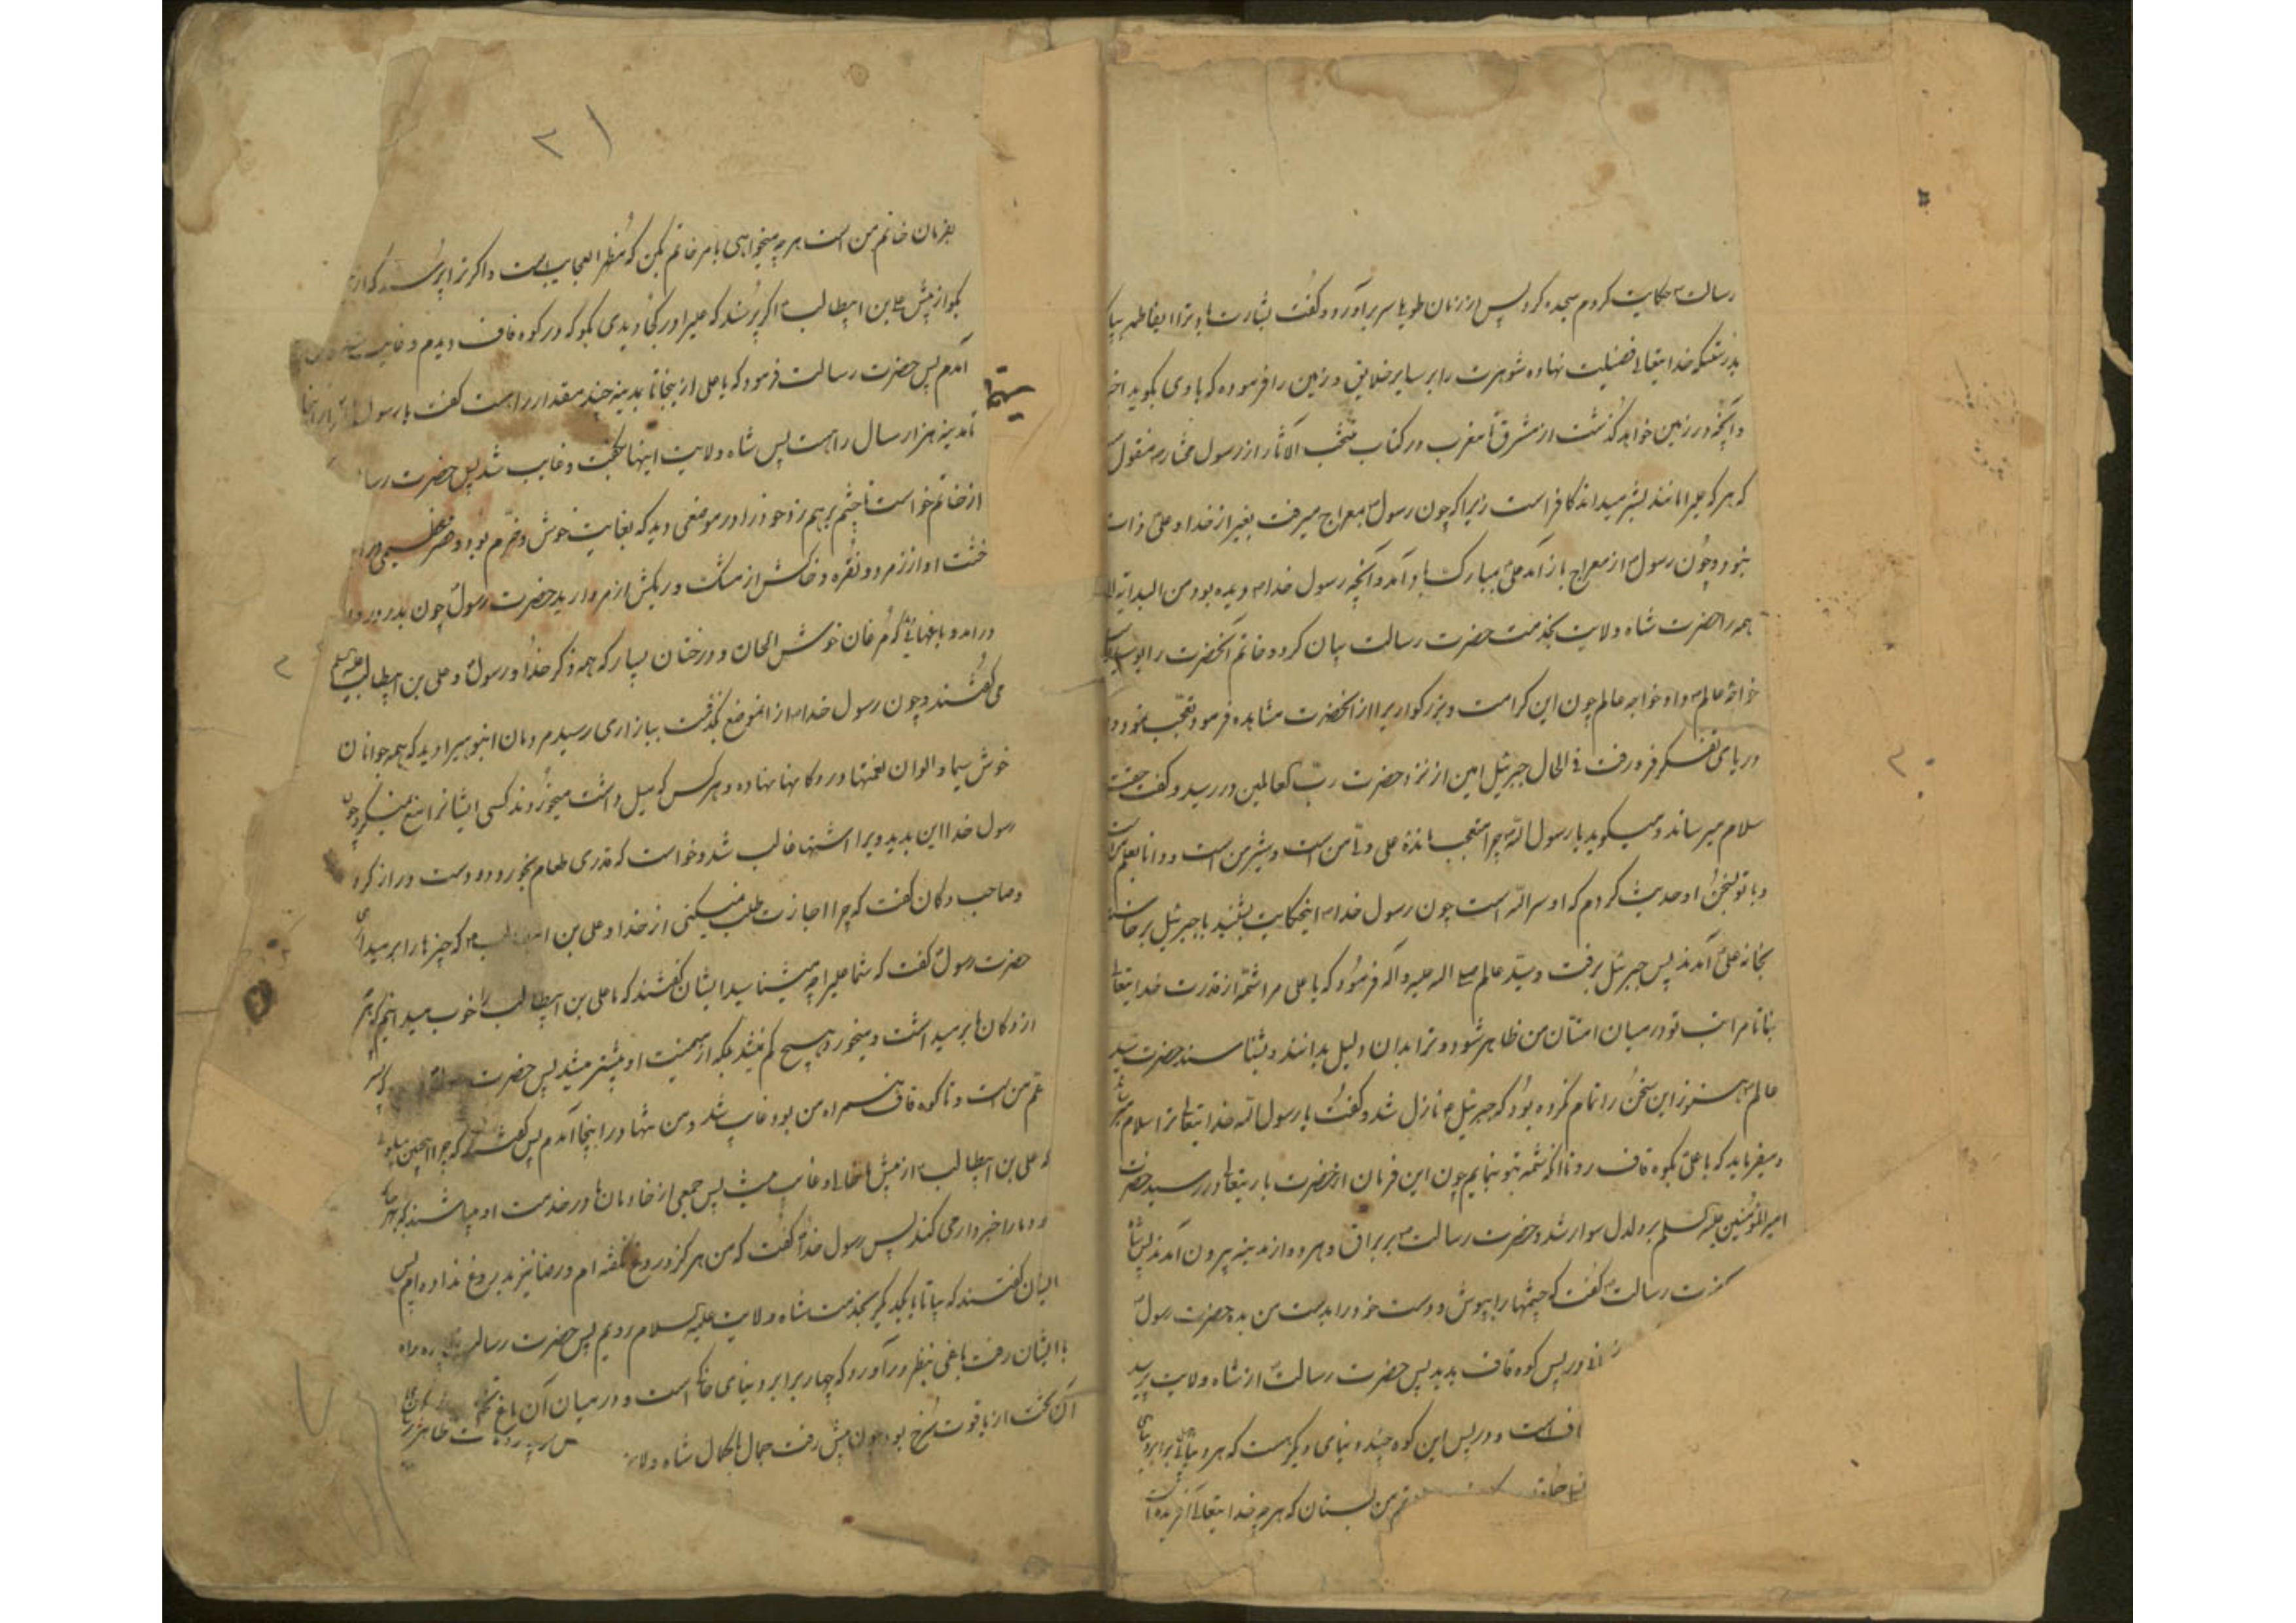 رسالت حکایت کردم سجده کرد پس از زمان طویل سر برآورد و گفت بشارت باد ترا ایفاطمه
بدرستیکه خدایتعالی فضیلت نهاده شوهرت را بر سایر خلایق و زمین را فرموده که با وی بگوید
و آنچه در زمین خواهد گذشت از مشرق تا مغرب در کتاب منتخب الآثار از رسول مختار منقول
که هر که علیرا مانند بشر میداند کافر است زیرا که چون رسول بمعراج میرفت بغیر از خدا و علی ذات
نبود و چون رسول از معراج باز آمد علی بمبارکباد آمد و آنچه رسول خدا دیده بود من البدایة
همه را حضرت شاه ولایت بخدمت حضرت رسالت بیان کرد و خاتم آنحضرت را
خواجه عالم داد خواجه عالم چون این کرامت و بزرگواریرا از آنحضرت مشاهده فرمود تعجب نمود و
دریای تفکر فرو رفت فی الحال جبرئیل امین از نزد حضرت رب العالمین در رسید و گفت
سلام میرساند و میگوید یا رسول الله چرا متعجب مانده علی ولی من است و شیر من است و دانا بعلم
و با تو بسخن او حدیث کردم که او سر الله است چون رسول خدا اینحکایت بشنید با جبرئیل برخاست
بخانه علی آمدند پس جبرئیل برفت و سید عالم صلی الله علیه و آله فرمود که یا علی مرا شمه از قدرت خدایتعالی
بنما تا مراتب تو در میان امتان من ظاهر شود و ترا بدان دلیل بدانند و بشناسند حضرت سید
عالم هنوز این سخن را تمام نکرده بود که جبرئیل نازل شد و گفت یا رسول الله خدایتعالی ترا سلام
و میفرماید که با علی بکوه قاف رو تا آنکه شمه بتو بنمایم چون این فرمان از حضرت باریتعالی در رسید حضرت
امیرالمؤمنین علیه السلم بر دلدل سوار شد و حضرت رسالت بر براق و هر دو از مدینه بیرون آمدند پس شاه
رسالت گفت که چشمها را بپوش و دست خود را بدست من بده حضرت رسول
در پس کوه قاف بدید پس حضرت رسالت از شاه ولایت پرسید
است و در پس این کوه چند دنیای دیگر هست که هر دنیائی برابر
من بستان که هر چه خدایتعالی آفریده
۳۱
بفرمان خاتم من است هر چه میخواهی با مر خاتم بکن که مظهر العجایب است و اگر ترا پرسند که از
بگو از پیش علی بن ابیطالب اگر پرسند که علیرا در کجا دیدی بگو که در کوه قاف دیدم و غایب
آمدم پس حضرت رسالت فرمود که یا علی از اینجا تا بمدینه چند مقدار راه است گفت یا رسول الله از اینجا
تا مدینه هزار سال راهست پس شاه ولایت اینها بگفت و غایب شد پس حضرت
از خاتم خواست تا چشم بر هم زد خود را در موضعی دید که بغایت خوش و خرم بود و
خشت او از زر و نقره و خاکش از مشک و ریگش از مروارید حضرت رسول چون بدر
درآمد و باغهائی که مرغان خوش الحان و درختان بسیار که همه ذکر خدا و رسول و علی بن ابیطالب علیه السلم
می گفتند و چون رسول خدا از آنموضع بگذشت ببازاری رسید مردمان انبوهیرا دید که همه جوانان
خوش سیما و الوان نعمتها در دکانها نهاده و هر کس که میل داشت میخوردند کسی ایشانرا منع نمیکرد چون
رسول خدا این بدید ویرا اشتها غالب شد و خواست که قدری طعام بخورد و دست دراز کرد
و صاحب دکان گفت که چرا اجازت طلب نمیکنی از خدا و علی بن که چیزها را بر میداری
حضرت رسول گفت که شما علیرا چه میشناسید ایشان گفتند که ما علی بن ابیطالب را خوب میدانیم که
از دکان ها برمیداشت و میخورد و هیچ کم نمیشد بلکه از میمنت او بیشتر میشد پس حضرت
عم من است و تا کوه قاف همراه من بود غایب شد و من تنها در اینجا آمدم پس گفتند که چرا اینچنین
که علی بن ابیطالب از پیش ما خالی و غایب پس جمعی از خادمان ها در خدمت او میباشند که هر
ما را خبردار می کنند پس رسول خدا گفت که من هرگز دروغ نگفته ام و رضا نیز بدروغ نداده ام پس
ایشان گفتند که بیا تا با یکدیگر بخدمت شاه ولایت علیه السلام رویم پس حضرت رسالت
با ایشان رفت باغی بنظر درآورد که چهار برابر دنیای خاکی است و در میان آن باغ
آن تخت از یاقوت سرخ بود چون پیش رفت جمال با کمال شاه